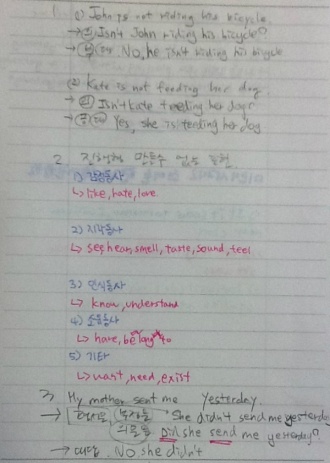 (1) John is not riding his bicycle.
→ (의) Isn't John riding his bicycle?
→ No, he isn't riding his bicycle
(2) Kate is not feeding her dog
→ (의) Isn't Kate feeding her dog?
→ Yes, she is feeding her dog
2. 진행형 만들 수 없는 표현
1) 감정동사
↳ like, hate, love
2) 지각동사
↳ see, hear, smell, taste, sound, feel
3) 인식동사
↳ know, understand
4) 소유동사
↳ have, belong to
5) 기타
↳ want, need, exist
3. My mother sent me yesterday.
→ 부정문 She didn't send me yesterday
의문문 Did she send me yesterday?
→ 대답. No she didn't